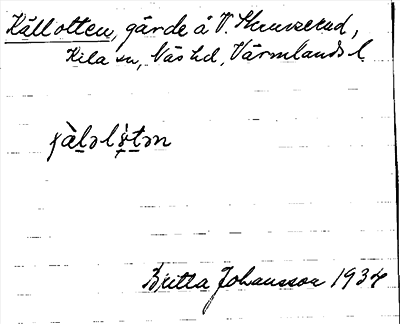 Källotten, gärde å V. Hunserud,
Kila sn, Näs hd, Värmlands l.
Britta Johansson 1934